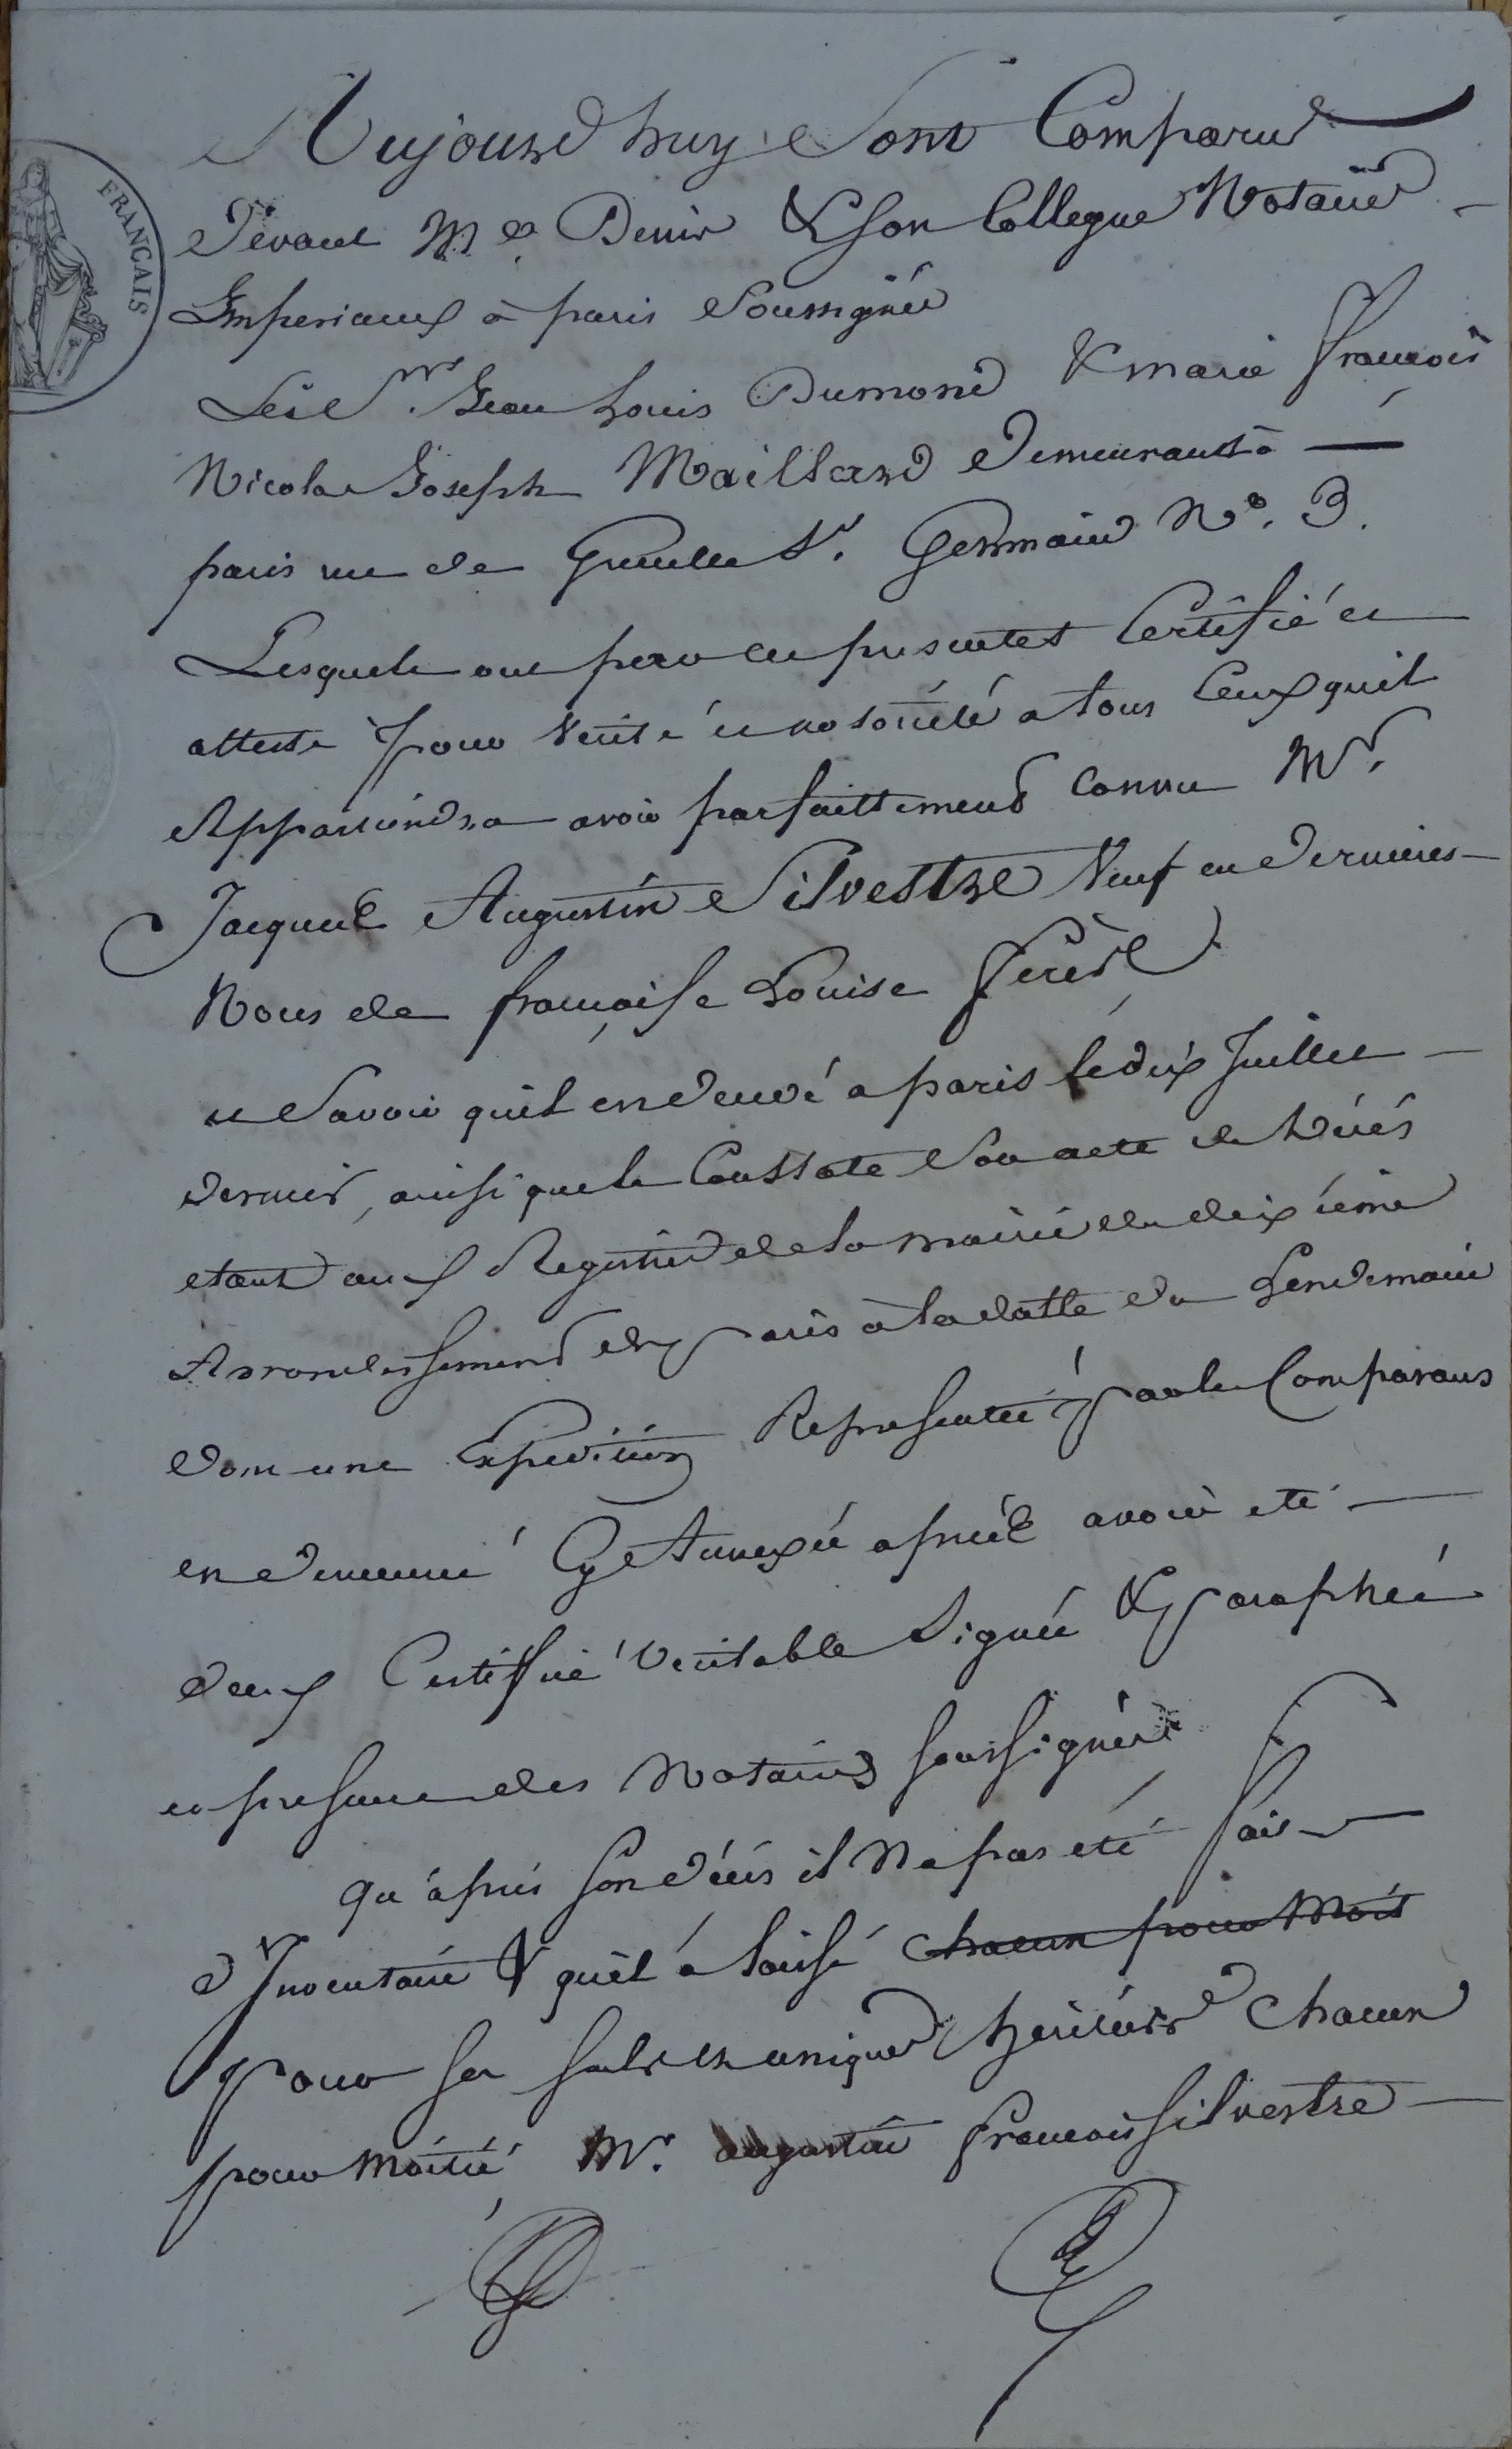 FRANCAIS
Aujourd huy Sont Comparus
Devant Me Denis & Son Collegue Notaires
Imperiaux à paris Soussignés
Les Srs. Jean Louis Dumond & marie françois
Nicolas Joseph Maillard Demeurant à
paris rue de Grenelle St. Germain No. 3.
Lesquels ont par ces presentes Certifié et
attesté pour verité et notoriété a tous Ceux quil
Appartiendra avoir parfaittement connu Mr.
Jacques Augustin Silvestre Veuf en dernieres
Noces de françoise Louise férès
et Savoir quil en decedé a paris le dix Juillet
dernier, ainsi que le Constate Son acte de décés
etant aux Registres de la mairie du dixieme
Arrondissement de paris à la datte du Lendemain
Dont une Expedition Representée par les Comparans
en demeurée Cy Annexée aprés avoir eté
d'eux Certifiée veritable Signée & paraphée
en presence des Notaires soussignés
qu'aprés son décés il N'a pas eté fait
d'Inventaire & quil a laissé chacun pour Moit
pour ses seuls et uniques heritiers Chacun
pour moitié Mr. augustin françois silvestre